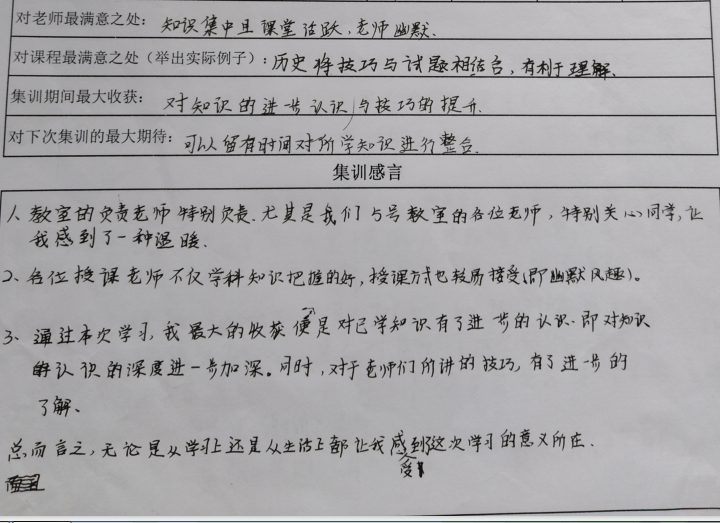 对老师最满意之处：知识集中且课堂活跃，老师幽默.
对课程最满意之处（举出实际例子）：历史将技巧与试题相结合，有利于理解.
集训期间最大收获：对知识的进步认识与技巧的提升.
对下次集训的最大期待：可以留有时间对所学知识进行整合.
集训感言
1、教室的负责老师特别负责.尤其是我们5号教室的各位老师，特别关心同学，让
我感到了一种温暖.
2、各位授课老师不仅学科知识把握的好，授课方式也较易接受（即幽默风趣）。
3、通过本次学习，我最大的收获便是对已学知识有了进一步的认识.即对知识
的认识的深度进一步加深。同时，对于老师们所讲的技巧，有了进一步的
了解、
总而言之，无论是从学习上还是从生活上都让我感受到了这次学习的意义所在.